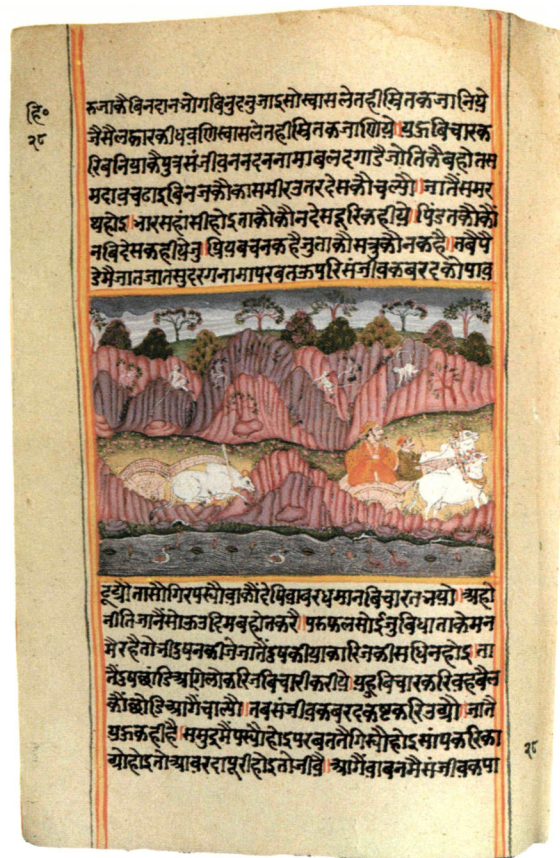 हि॰
२८
रुजाकैबिनदानभोगबिनुदनुजाइसोस्वासलेतहीम्रितकजानिये
जैसैलहारकीधवणिस्वासलेतहीम्रितकजाणिये॥यह बिचारक
रिबनियाकैपुत्रसंजीवननदननामाबलदगाडैजोतिकैबहोतस
मदावचढाइबिनजकौकासमीरउतरदेसकौचल्यौ॥जातैंसमर
थहोइ॥भारसहांसीहोइताकौकौनदेसदूरिकहीये॥पिंडतकौकौं
नबिदेसकहीयेनु॥प्रियबचनकहैनुताकौसत्रुकौनकहै॥तबपै
डेमैजातजातसुदरगनामापरबतऊपरिसंजीवकबरदकोपाव
टूट्यौतासौगिरपस्यौवाकौंदेषिवावरधमानबिचारतभयो॥अहो
नीतिजानैंसोऊउदिमबहोतकरै॥परुफलसोईजुबिधाताकेमन
मैरहै
तैंदुषछांडिअगिलोकरिजबिचारीकरीये॥यहुबिचारकरिवहबैल
कौंछोडिआगैंचाल्यौ॥तबसंजीवकबरदकष्टकरिउठ्यो॥जातै
यहकहीहै॥समुद्रमैंपस्यौहोइपरबततैगिस्यौहोइसांपकरिका
ट्योहोइतोआवरदापूरीहोइतोजीवै॥आगैंवाबनमैसंजीवकपा
२८